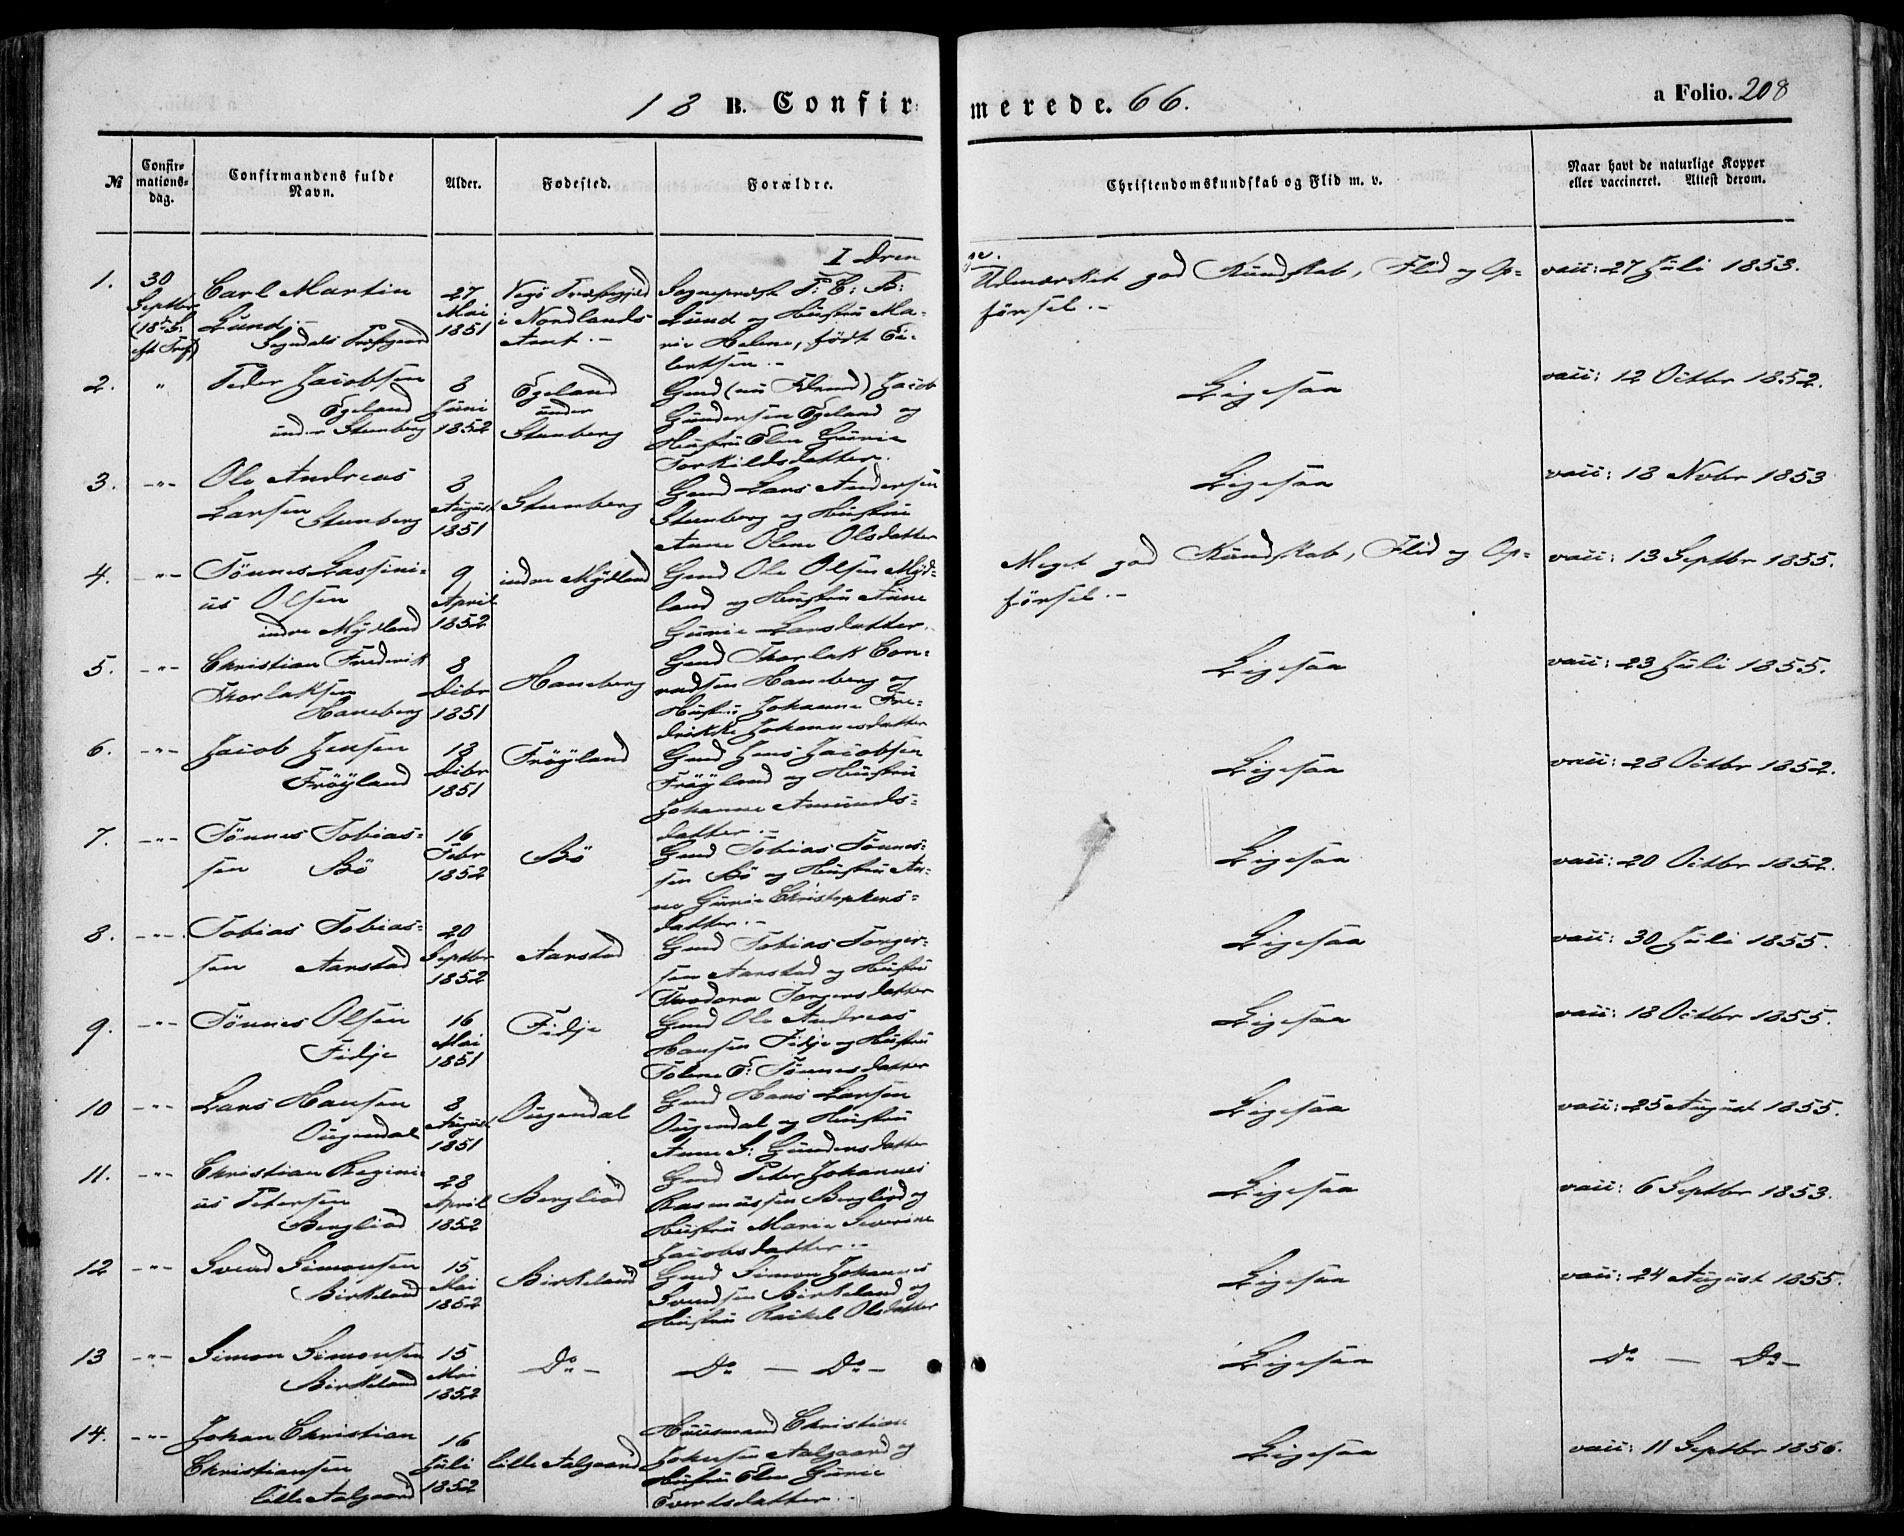 18 B. Confirmerede. 66.
a Folio. 208
№
Confirmationsdag.
Confirmandens fulde Navn.
Alder.
Fødested.
Forældre.
Christendomskundskab og Flid m. v.
Naar havt de naturlige Kopper eller vaccineret. Attest derom.
I Drenge.
1.
30 Septbr (18de S. eft Tref)
Carl Martin
Lund.-
Sogndals Præstgaard
27 Mai 1851
Vegø Præstegjeld
i Nordlands
Amt.-
Sognepræst T: C: B:
Lund og Hustru Ma-
rie Helene, født Ei-
lertsen.-
Udmærket god Kundskab, Flid og Op-
førsel.-
vacc: 27 Juli 1853.
2. "
Peder Jacobsen
Egeland
under Steenberg
8 Juni 1852
Egeland
under
Steenberg
Gmd (nu Fdrmd) Jacob
Gundersen Egeland og
Hustru Elen Gurie
Torkildsdatter.
Ligesaa
vacc: 12 Octbr 1852.
3. -"-
Ole Andreas
Larsen Steenberg
8 August 1851
Steenberg
Gmd Lars Andersen
Steenberg og Hustru
Anne Olene Olsdatter
Ligesaa
vacc: 18 Novbr 1853
4. -"-
Tönnes Lassini-
us Olsen
indre Mydland
9 April 1852
indre Mydland
Gmd Ole Olsen Myd-
land og Hustru Anne
Gurie Larsdatter.
Meget god Kundskab, Flid og Op-
førsel.-
vacc: 13 Septbr 1855.
5. -"-
Christian Frederik
Thorlaksen
Haneberg
8 Dcbr 1851
Haneberg
Gmd Thorlak Con-
radsen Haneberg og
Hustru Johanne Fre-
drikke Johannesdatter
Ligesaa
vacc: 23 Juli 1855.
6. -"-
Jacob Jensen
Fröyland
18 Dcbr 1851
Fröyland
Gmd Jens Jacobsen
Fröyland og Hustru
Johanne Amunds-
datter.-
Ligesaa
vacc: 28 Octbr 1852.
7. -"-
Tönnes Tobias-
sen Bö
16 Febr 1852
Bö
Gmd Tobias Tönnes-
sen Bö og Hustru An-
ne Gurie Christophers-
datter.-
Ligesaa
vacc: 20 Octbr 1852.
8. -"-
Tobias Tobias-
sen Aarstad
20 Septbr 1852
Aarstad
Gmd Tobias Torger-
sen Aarstad og Hustru
Theodora Torgersdatter
Ligesaa
vacc: 30 Juli 1855.
9. -"-
Tönnes Olsen
Fidje
16 Mai 1851
Fidje
Gmd Ole Andreas
Hansen Fidje og Hustru
Tolene T: Tönnesdatter
Ligesaa
vacc: 18 Octbr 1855.
10 -"-
Lars Hansen
Ougendal
8 August 1851
Ougendal
Gmd Hans Larsen
Ougendal og Hustru
Anne S: Gundersdatter
Ligesaa
vacc: 25 August 1855.
11. -"-
Christian Regini-
us Petersen
Bergliod
28 April 1852
Bergliod
Gmd Peter Johannes
Rasmussen Bergliod og
Hustru Marie Severine
Jacobsdatter.-
Ligesaa
vacc: 6 Septbr 1853.
12 -"-
Svend Simonsen
Birkeland
15 Mai 1852
Birkeland
Gmd Simon Johannes
Svendsen Birkeland og
Hustru Rachel Olsdatter
Ligesaa
vacc: 24 August 1855.
13 -"-
Simon Simonsen
Birkeland
15 Mai 1852
Do -
Do - Do -
Ligesaa
Do - Do -
14. -"-
Johan Christian
Christiansen
lille Aalgaard
16 Juli 1852
lille Aalgaard
Huusmand Christian
Johnsen Aalgaard og
Hustru Elen Gurie
Evertsdatter.-
Ligesaa
vacc: 11 Septbr 1856.